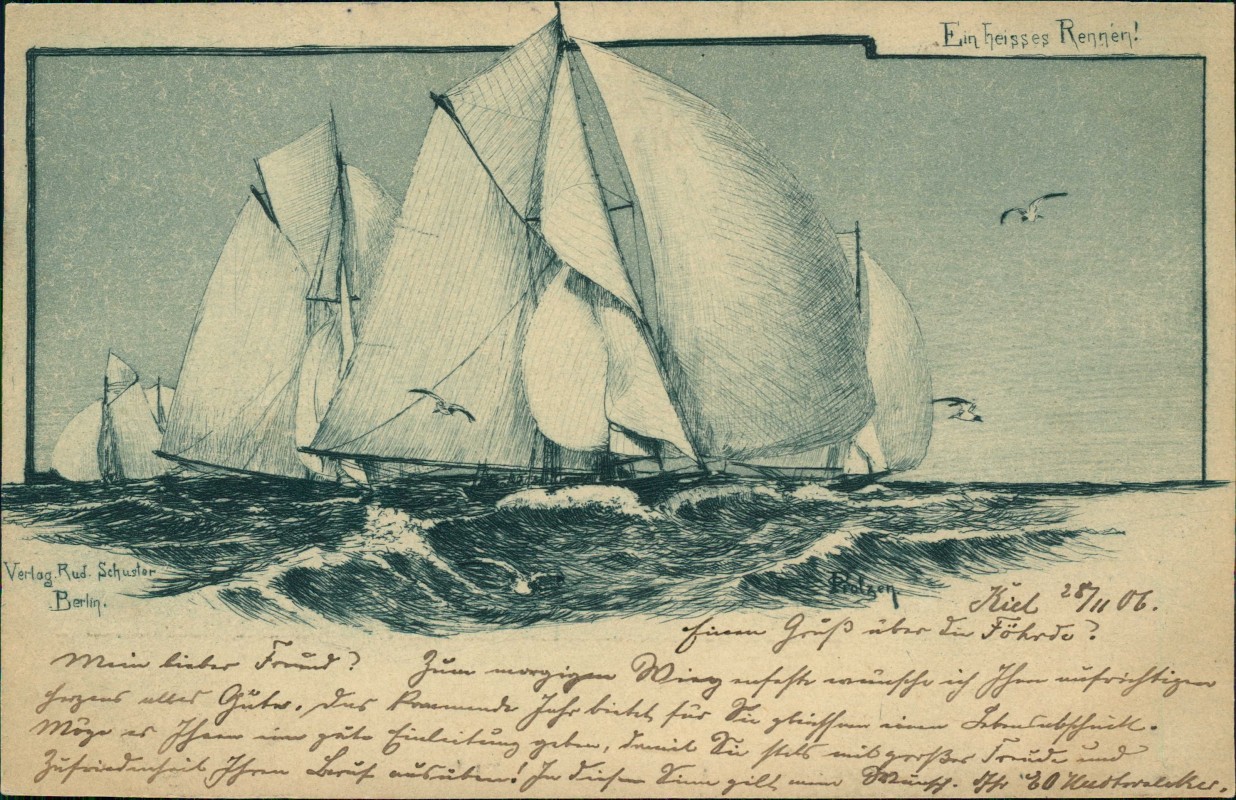 Ein heisses Rennen!
Verlag. Rud. Schuster
Berlin.
Protzen
Kiel 28/11 06.
Einen Gruß über die Föhrde!
Mein lieber Freund! Zum morgigen wünsche ich Ihnen aufrichtigen
Herzens alles Gute. Das kommende Jahr bietet für Sie einen Lebensabschnitt.
Möge es Ihnen eine gute Einleitung geben, damit Sie stets mit großer Freude und
Zufriedenheit Ihren Beruf ausüben! In diesem Sinne gilt mein Wunsch. Ihr